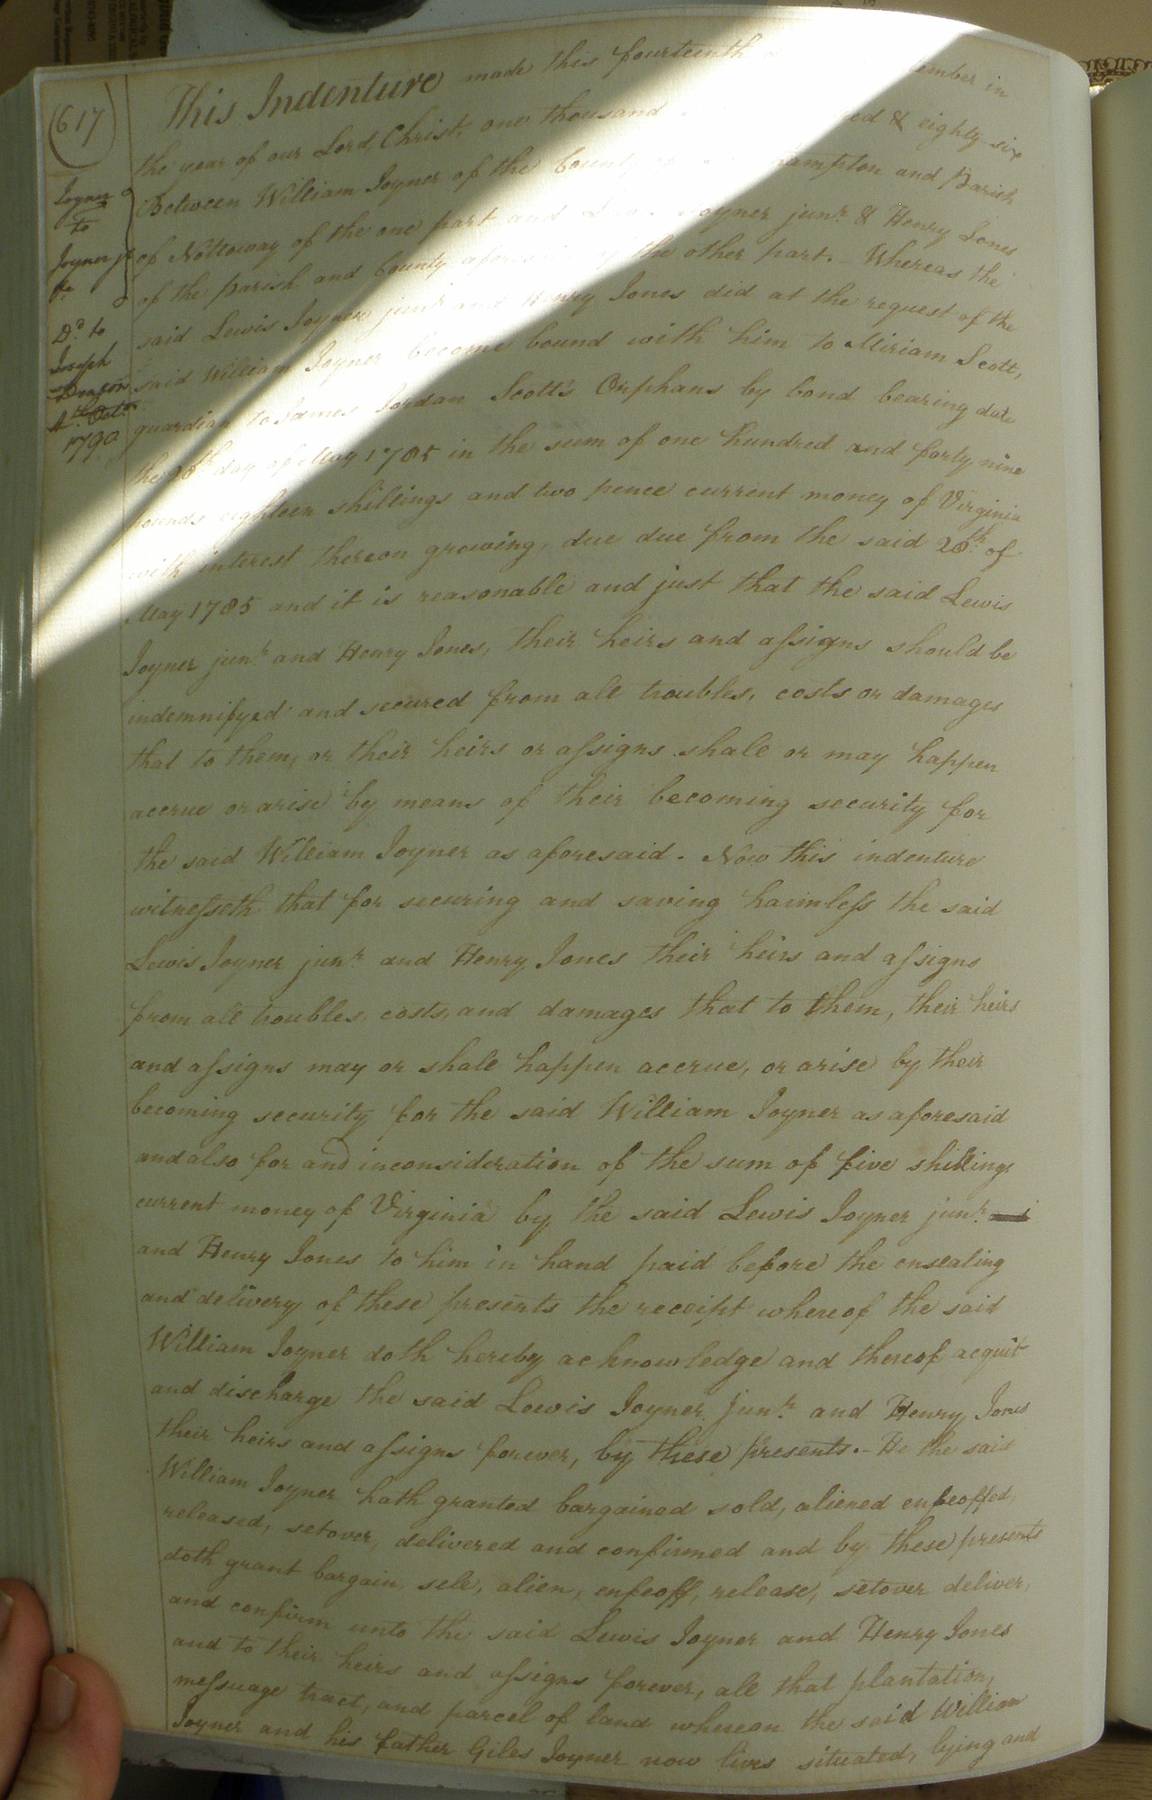 (617)
This Indenture made this fourteenth ember in
the year of our Lord Christ, one thousand ed & eighty-six
Between William Joyner of the County ampton and Parish
of Nottoway of the one part and Joyner junr. & Henry Jones
of the parish and County aforesaid of the other part. - Whereas the
said Lewis Joyner junr. and Henry Jones did at the request of the
said William Joyner become bound with him to Miriam Scott,
guardian to James Jordan Scott's Orphans by bond bearing date
the 28th day of May 1785 in the sum of one hundred and forty nine
pounds eighteen shillings and two pence current money of Virginia
with interest thereon growing, due due from the said 28th. of
May 1785 and it is reasonable and just that the said Lewis
Joyner junr. and Henry Jones, their heirs and assigns should be
indemnifyed and secured from all troubles, costs or damages
that to them, or their heirs or assigns shall or may happen
accrue or arise by means of their becoming security for
the said William Joyner as aforesaid. Now this indenture
witnesseth that for securing and saving harmless the said
Lewis Joyner junr. and Henry Jones their heirs and assigns
from all troubles, costs, and damages that to them, their heirs
and assigns may or shall happen accrue, or arise by their
becoming security for the said William Joyner as aforesaid
and also for and inconsideration of the sum of five shillings
current money of Virginia by the said Lewis Joyner junr.
and Henry Jones to him in hand paid before the ensealing
and delivery of these presents the receipt whereof the said
William Joyner doth hereby acknowledge and thereof acquit
and discharge the said Lewis Joyner junr. and Henry Jones
their heirs and assigns forever, by these presents. - He the said
William Joyner hath granted bargained sold, aliened enfeoffed,
released, setover, delivered and confirmed and by these presents
doth grant bargain, sell, alien, enfeoff, release, setover deliver,
and confirm unto the said Lewis Joyner and Henry Jones
and to their heirs and assigns forever, all that plantation,
messuage tract, and parcel of land whereon the said William
Joyner and his father Giles Joyner now lives situated, lying and
Joyner
to
Joyner jr
Dd. to
Joseph
4th. Octr.
1790